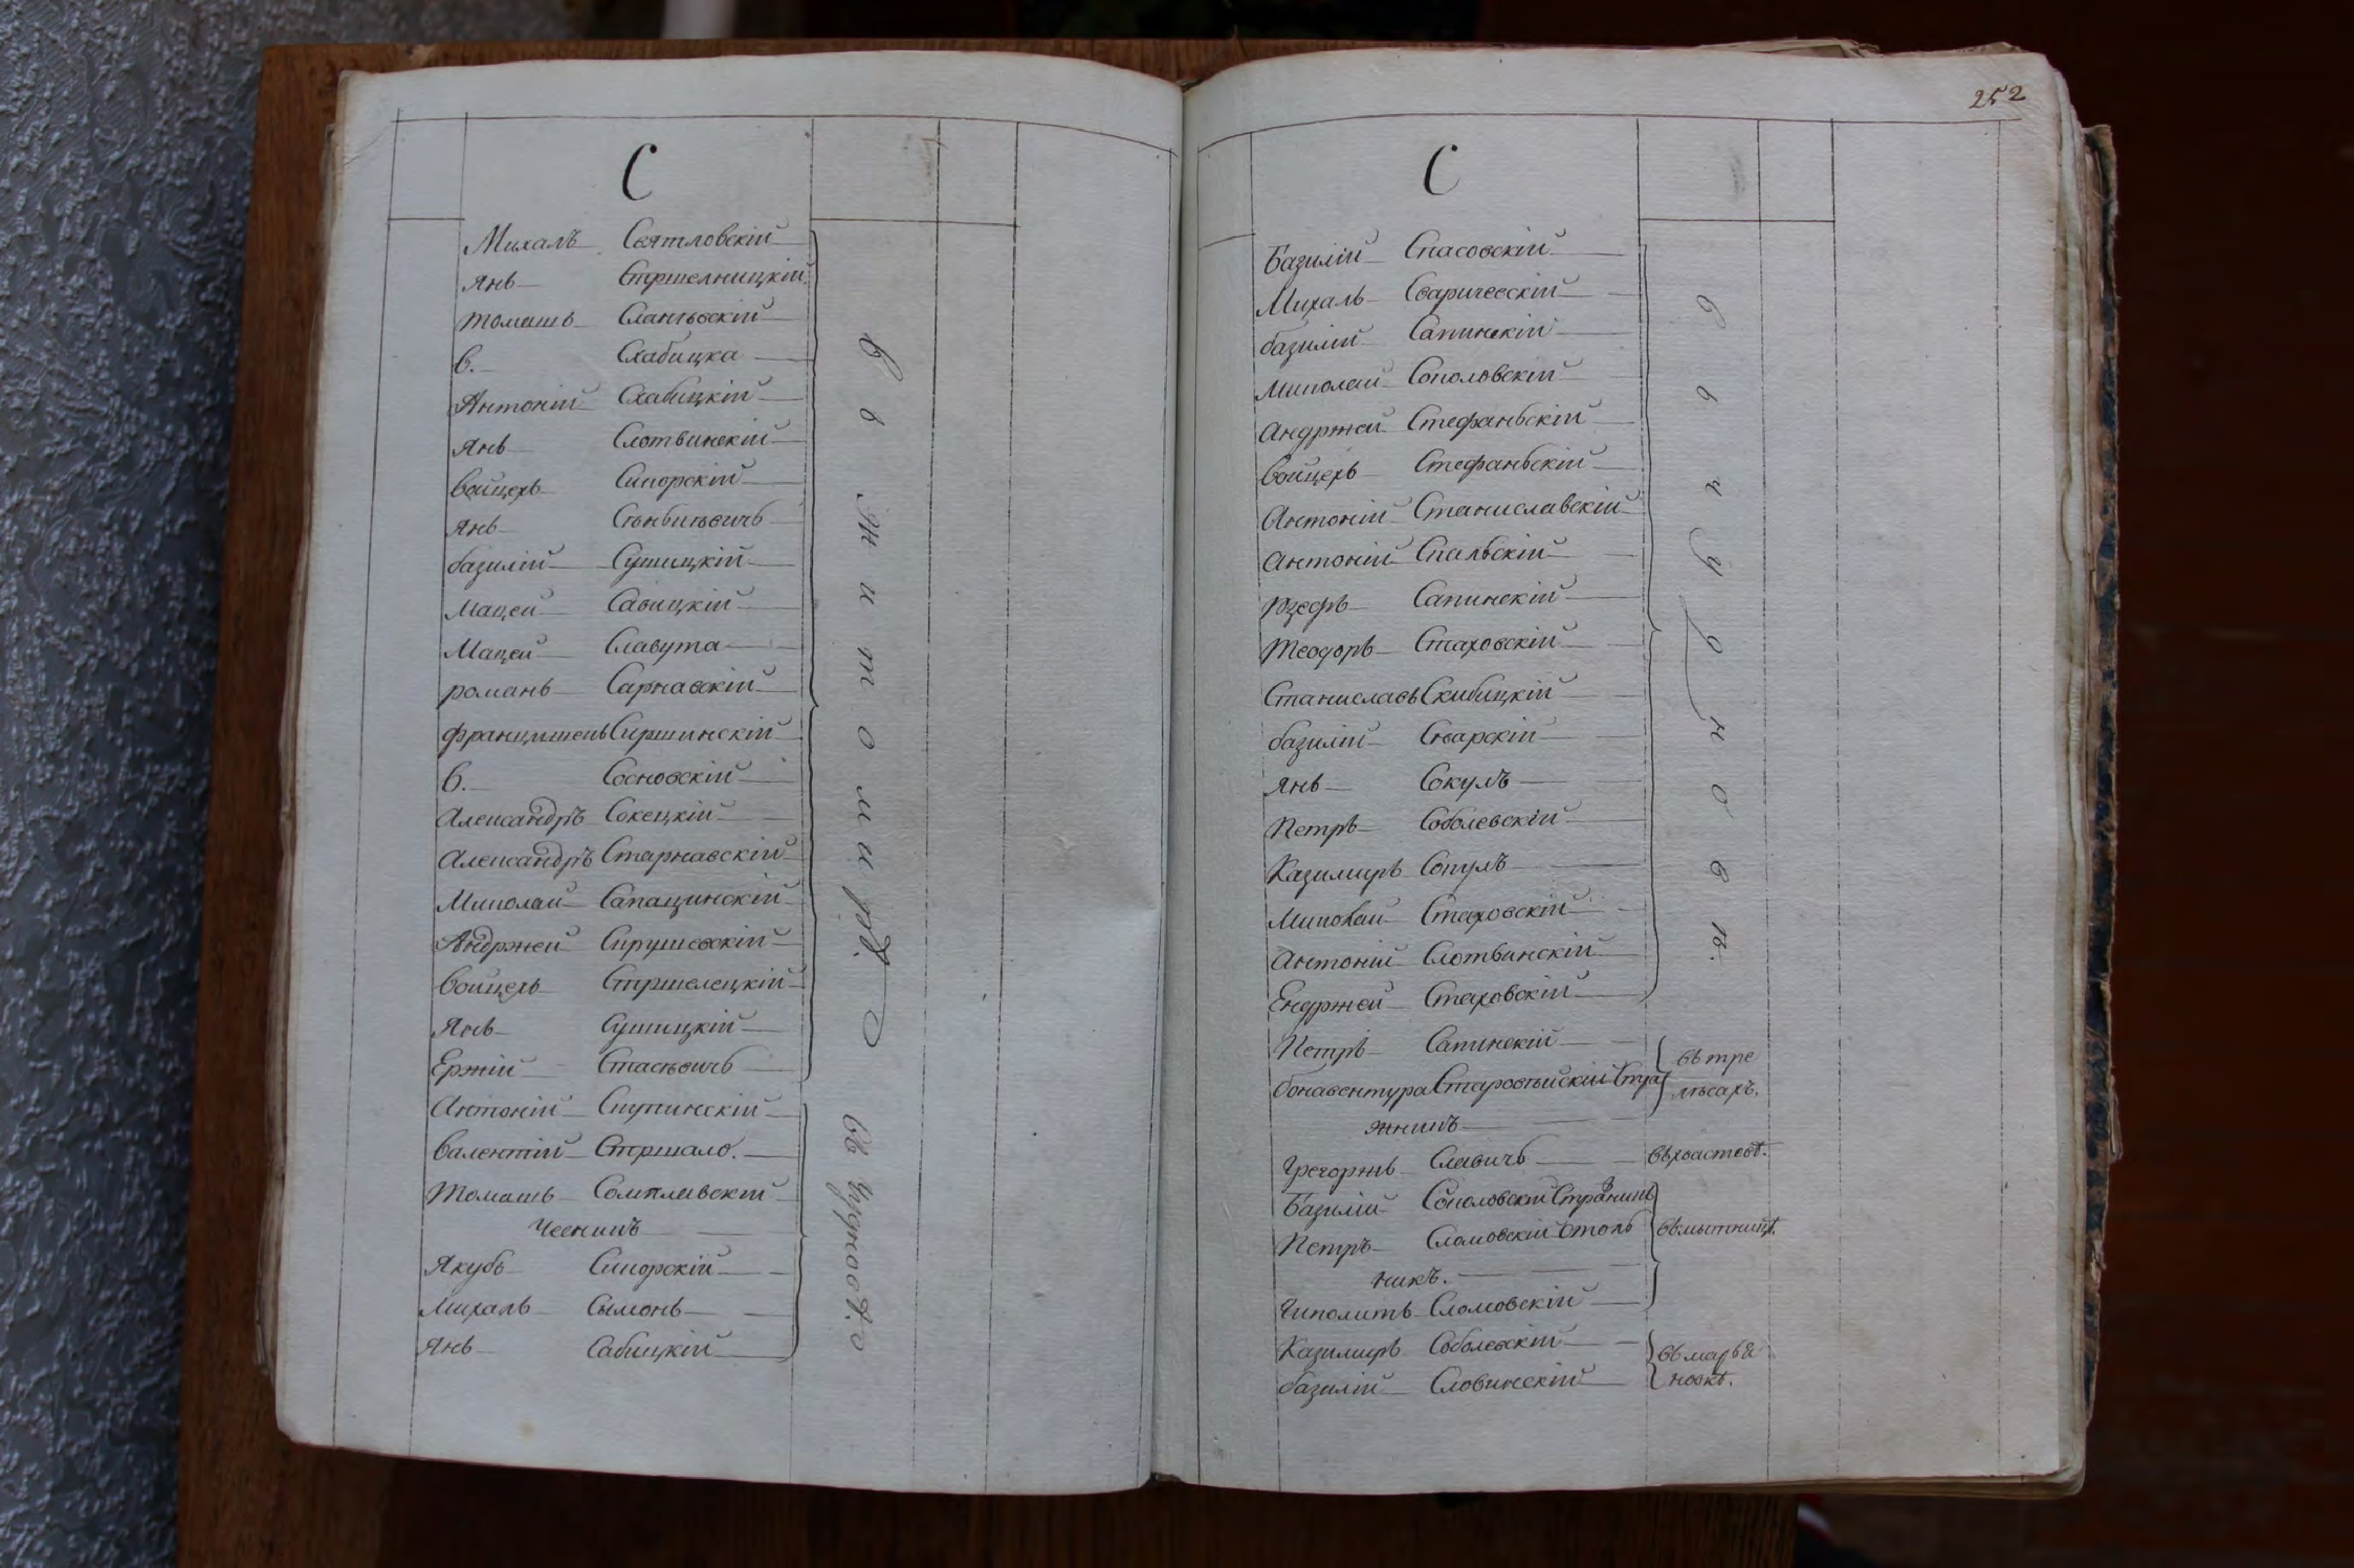 С
Михалъ Святловскій
Янъ Стршелницкій
Томашъ
В. Схабицка
Антоній Схабицкій
Янъ Слотвинскій
Войцехъ Сикорскій
Янъ
базилій Сушицкій
Мацей Савицкій
Мацей Славута
романъ Сарнавскій
францишекъ
В. Сосновскій
Александръ Сокецкій
Александръ Старнавскій
Миколай Сапащинскій
Андржей
Войцехъ Стршелецкій
Янъ Сушицкій
Ержій
въ Житомирѣ
Антоній Скупинскій
Валентій Стршало.
Томашъ
Чесникъ
Якубъ Сикорскій
Михаль Сымонъ
Янъ Сабицкій
въ Чудновѣ
252
С
Базилій Спасовскій
Михаль Сваричевскій
базилій Сапинскій
Миколай Соколовскій
Андржей Стефанскій
Войцехъ Стефанскій
Антоній Станиславскій
Антоній Скальскій
Юзефъ Сапинскій
Теодоръ Стаховскій
Станиславъ Скибицкій
базилій
Янъ Сокулъ
Петръ Соболевскій
Казимиръ Сокулъ
Миколай Стаховскій
Антоній Слотвинскій
Ендржей Стаховскій
Петръ Сапинскій
бонавентура Стра
жникъ
въ тре
лѣсахъ.
Грегоржъ Славичъ въ хвастовѣ.
Базилій Соколовскій Стражникъ
Петръ Сломовскій Столь
никъ.
Гиполитъ Сломовскій
Казимиръ Соболевскій
базилій Словинскій
въ марья
новкѣ.